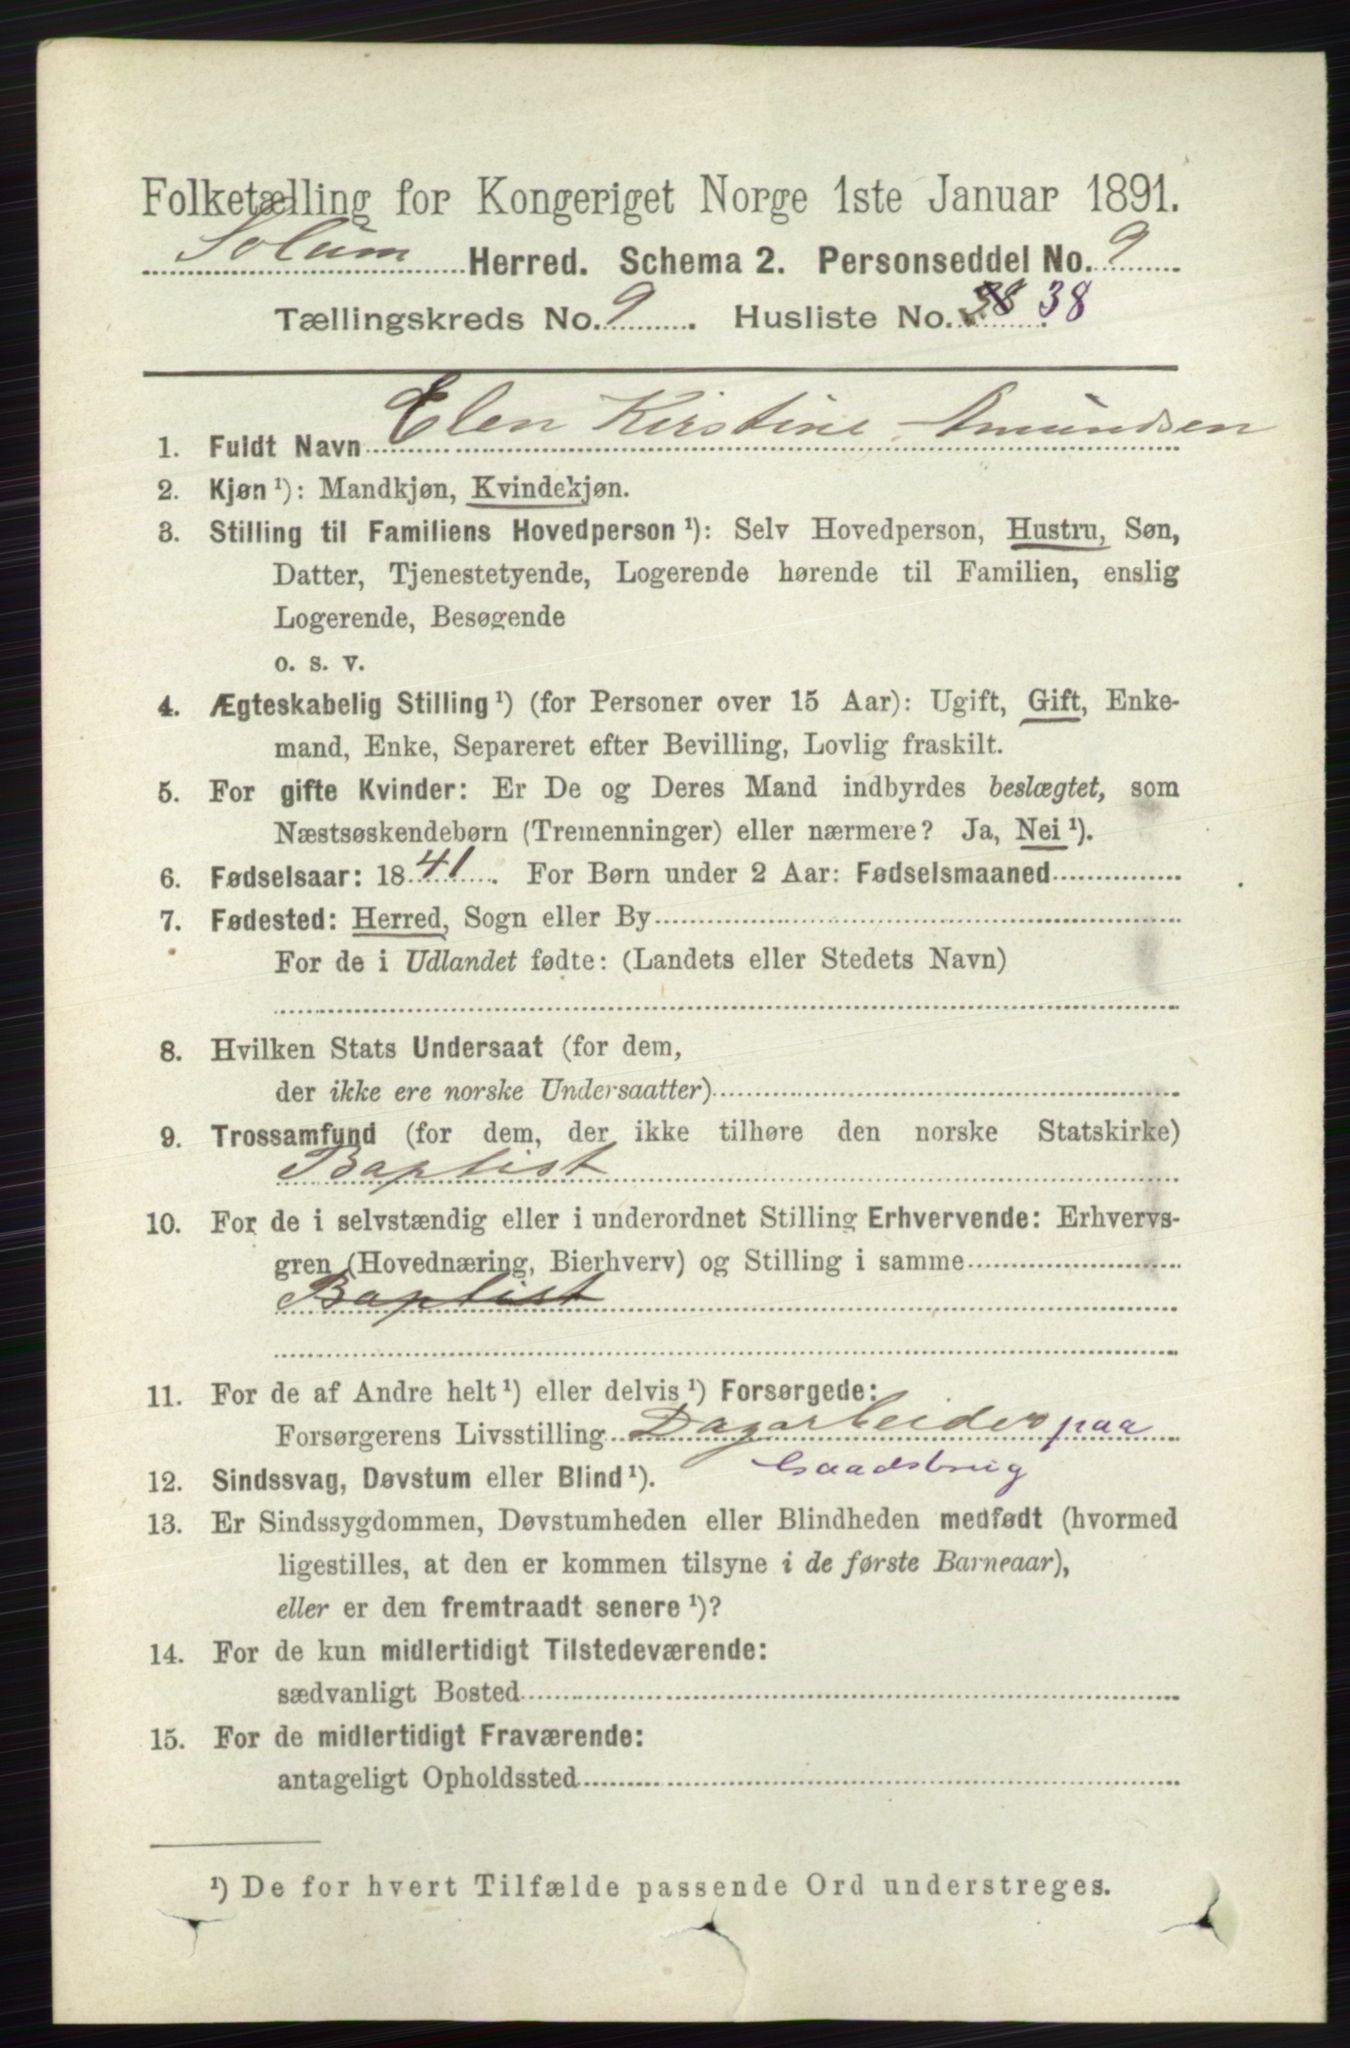 Folketælling for Kongeriget Norge 1ste Januar 1891.
Solum Herred. Schema 2. Personseddel No. 9
Tællingskreds No. 9. Husliste No. 38 38
1. Fuldt Navn Elen Kirstine Amundsen
2. Kjøn ¹): Mandkjøn, Kvindekjøn.
3. Stilling til Familiens Hovedperson ¹): Selv Hovedperson, Hustru, Søn,
Datter, Tjenestetyende, Logerende hørende til Familien, enslig
Logerende, Besøgende
o. s. v.
4. Ægteskabelig Stilling ¹) (for Personer over 15 Aar): Ugift, Gift, Enke-
mand, Enke, Separeret efter Bevilling, Lovlig fraskilt.
5. For gifte Kvinder: Er De og Deres Mand indbyrdes beslægtet, som
Næstsøskendebørn (Tremenninger) eller nærmere? Ja, Nei ¹).
6. Fødselsaar: 1841. For Børn under 2 Aar: Fødselsmaaned
7. Fødested: Herred, Sogn eller By
For de i Udlandet fødte: (Landets eller Stedets Navn)
8. Hvilken Stats Undersaat (for dem,
der ikke ere norske Undersaatter)
9. Trossamfund (for dem, der ikke tilhøre den norske Statskirke)
Baptist
10. For de i selvstændig eller i underordnet Stilling Erhvervende: Erhvervs-
gren (Hovednæring, Bierhverv) og Stilling i samme
Baptist
11. For de af Andre helt ¹) eller delvis ¹) Forsørgede:
Forsørgerens Livsstilling Dagarbeider paa
Gaadsbrug
12. Sindssvag, Døvstum eller Blind ¹).
13. Er Sindssygdommen, Døvstumheden eller Blindheden medfødt (hvormed
ligestilles, at den er kommen tilsyne i de første Barneaar),
eller er den fremtraadt senere ¹)?
14. For de kun midlertidigt Tilstedeværende:
sædvanligt Bosted
15. For de midlertidigt Fraværende:
antageligt Opholdssted
¹) De for hvert Tilfælde passende Ord understreges.